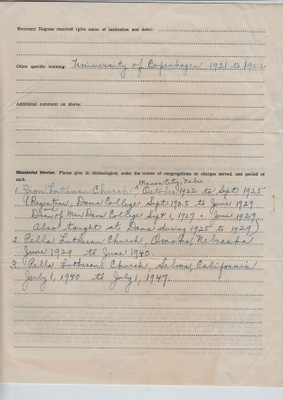 Honorary Degrees received (give name of institution and date):
Other specific training: University of Copenhagen 1921 to 1922
Additional comment on above:
Ministerial Service. Please give in chronological order the names of congregations or charges served, and period of
each.
Mason City, Nebr
1. Zion Lutheran Church October 1922 to Sept 1925
(Registrar, Dana College Sept 1925 to June 1929
and
Dean of Men Dana College Sept 1, 1927 - June 1929.
Also taught at Dana during 1925 to 1929)
2. Pella Lutheran Church, Omaha, Nebraska
June 1929 to June 1940.
3. Pella Lutheran Church, Selma, California
July 1, 1940 to July 1, 1947.